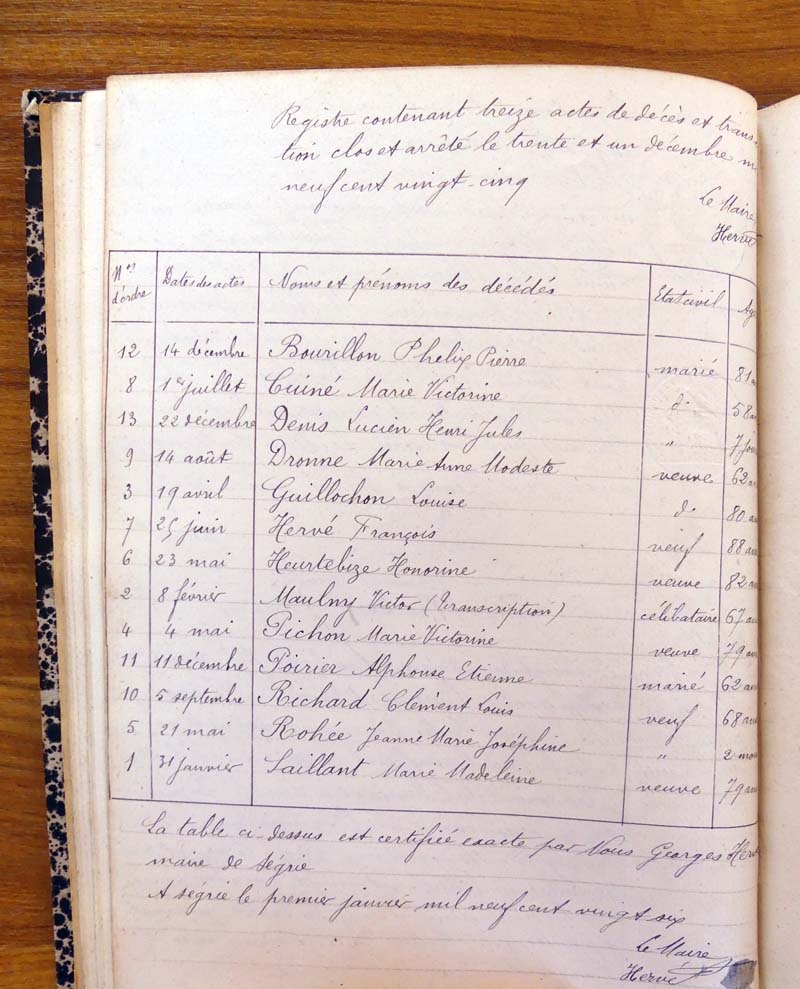 Registre contenant treize actes de décès et trans-
tion clos et arrêté le trente et un décembre m
neuf cent vingt-cinq
Le Maire
Hervé
Nos d'ordre Dates des actes Noms et prénoms des décédés Etat civil Ag
12 14 décembre Bourillon Phelix Pierre marié 81 a
8 1er juillet Cuiné Marie Victorine d° 58 an
13 22 décembre Denis Lucien Henri Jules " 7 jou
9 14 août Dronne Marie Anne Modeste veuve 62 a
3 19 avril Guillochon Louise d° 80 a
7 25 juin Hervé François veuf 88 an
6 23 mai Heurtebize Honorine veuve 82 an
2 8 février Maulny Victor (Transcription) célibataire 67 a
4 4 mai Pichon Marie Victorine veuve 79 an
11 11 décembre Poirier Alphonse Etienne marié 62 an
10 5 septembre Richard Clément Louis veuf 68 an
5 21 mai Rohée Jeanne Marie Joséphine " 2 moi
1 31 janvier Saillant Marie Madeleine veuve 79 an
La table ci-dessus est certifiée exacte par Nous Georges Herv
maire de Ségrie
A ségrie le premier janvier mil neuf cent vingt six
Le Maire
Hervé